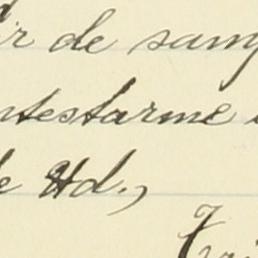 ir de sang
ntestarme
de Ud.,